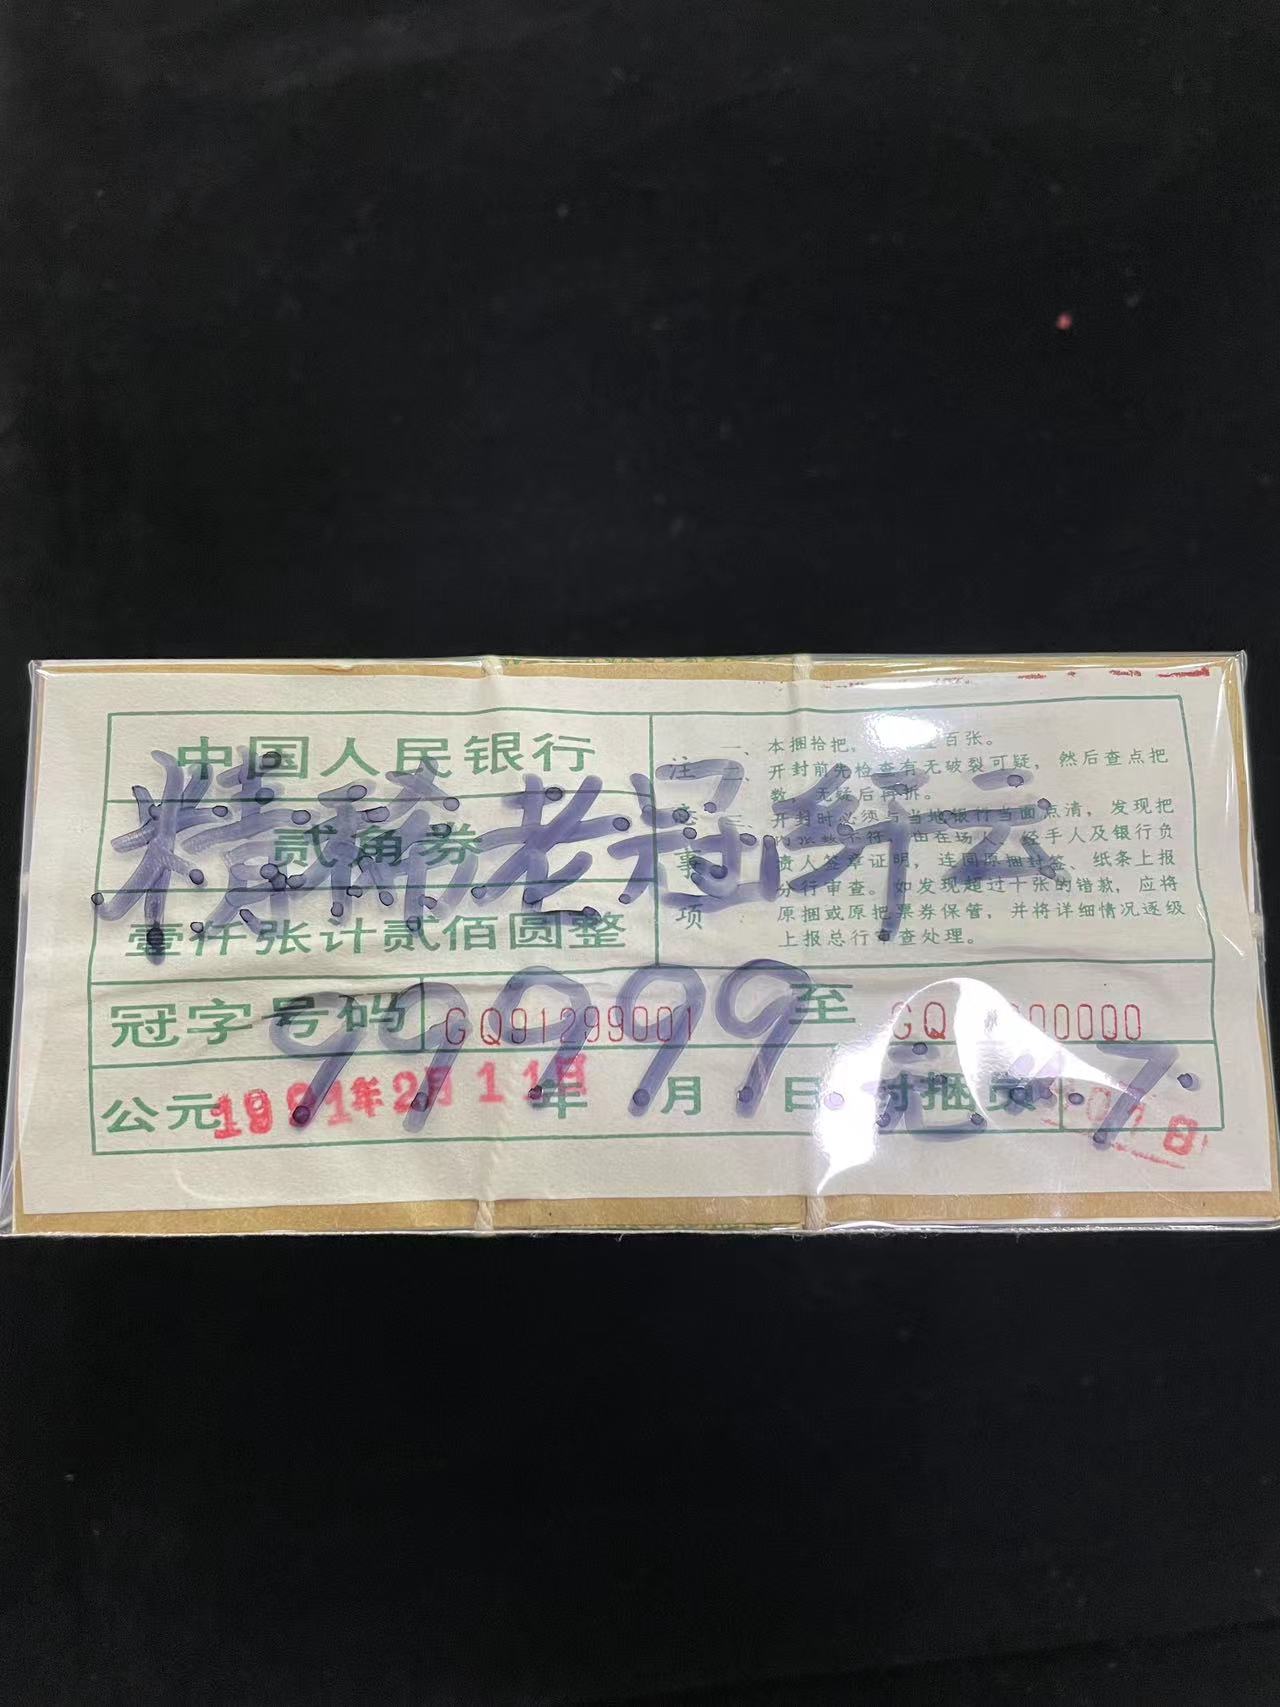 中国人民银行
贰角券
壹仟张计贰佰圆整
注意事项
一、本捆拾把，百张。
二、开封前先检查有无破裂可疑，然后查点把
数，无疑后再拆。
三、开封时必须与当地银行当面点清，发现把
内张数不符，由在场人、经手人及银行负
责人签章证明，连同原捆封签、纸条上报
分行审查。如发现超过十张的错款，应将
原捆或原把票券保管，并将详细情况逐级
上报总行审查处理。
精稀老冠
冠字号码 GQ91299001 至 GQ 00000
99999
公元 1991年2月11日 年 月 日 封捆员